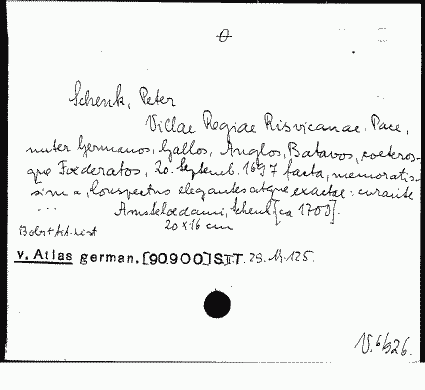 Ꝋ
Schenk, Peter
Villae Regiae Risvicanae. Pace,
inter Germanos, Gallos, Anglos, Batavos, coeteros-
que Foederatos, 20. Septemb. 1697 facta, memoratis-
sima, Conspectus elegantes atque exactae: curante
... Amstelaedami, Schenk [ca 1700].
20 x 16 cm
v. Atlas german. [90900] SIT. 28. M. 125.